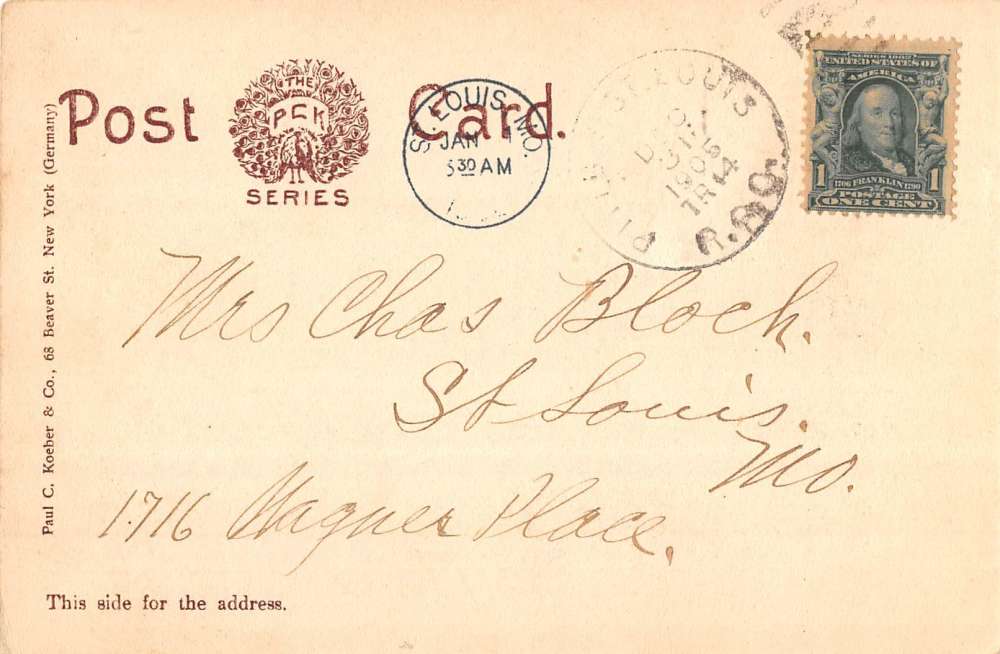 Post Card.
THE
PCK
SERIES
ST. LOUIS, MO.
JAN 1
30 AM
ST. LOUIS
DEC
31
1905
TR
R.P.O.
SERIES 1902
UNITED STATES OF
AMERICA
1 1
1706 FRANKLIN 1790
POSTAGE
ONE CENT
Paul C. Koeber & Co., 68 Beaver St. New York (Germany)
Mrs Chas Bloch.
St Louis.
Mo.
1716 Wagner Place.
This side for the address.